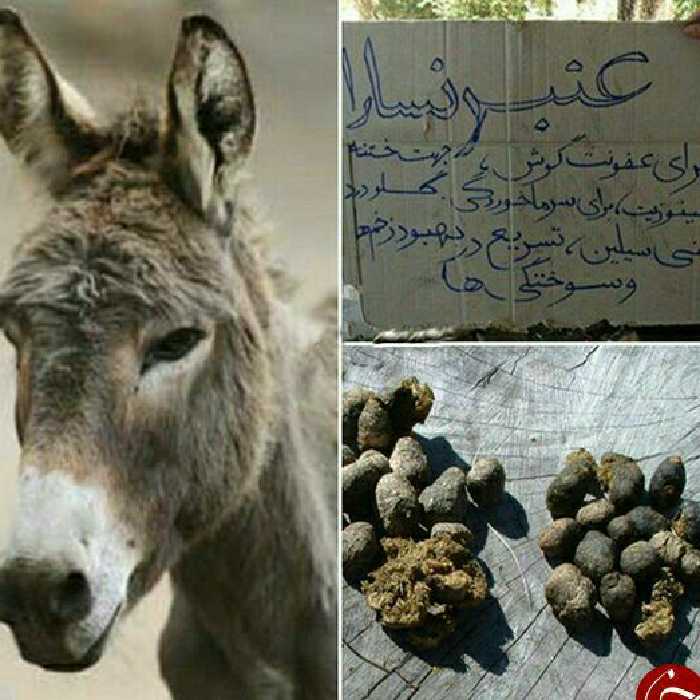 عنبر نسارا
برای عفونت گوش، جهت ختنه
سینوزیت، برای سرماخوردگی گلودرد
سی سیلین، تسریع در بهبود زخم ها
و سوختگی ها